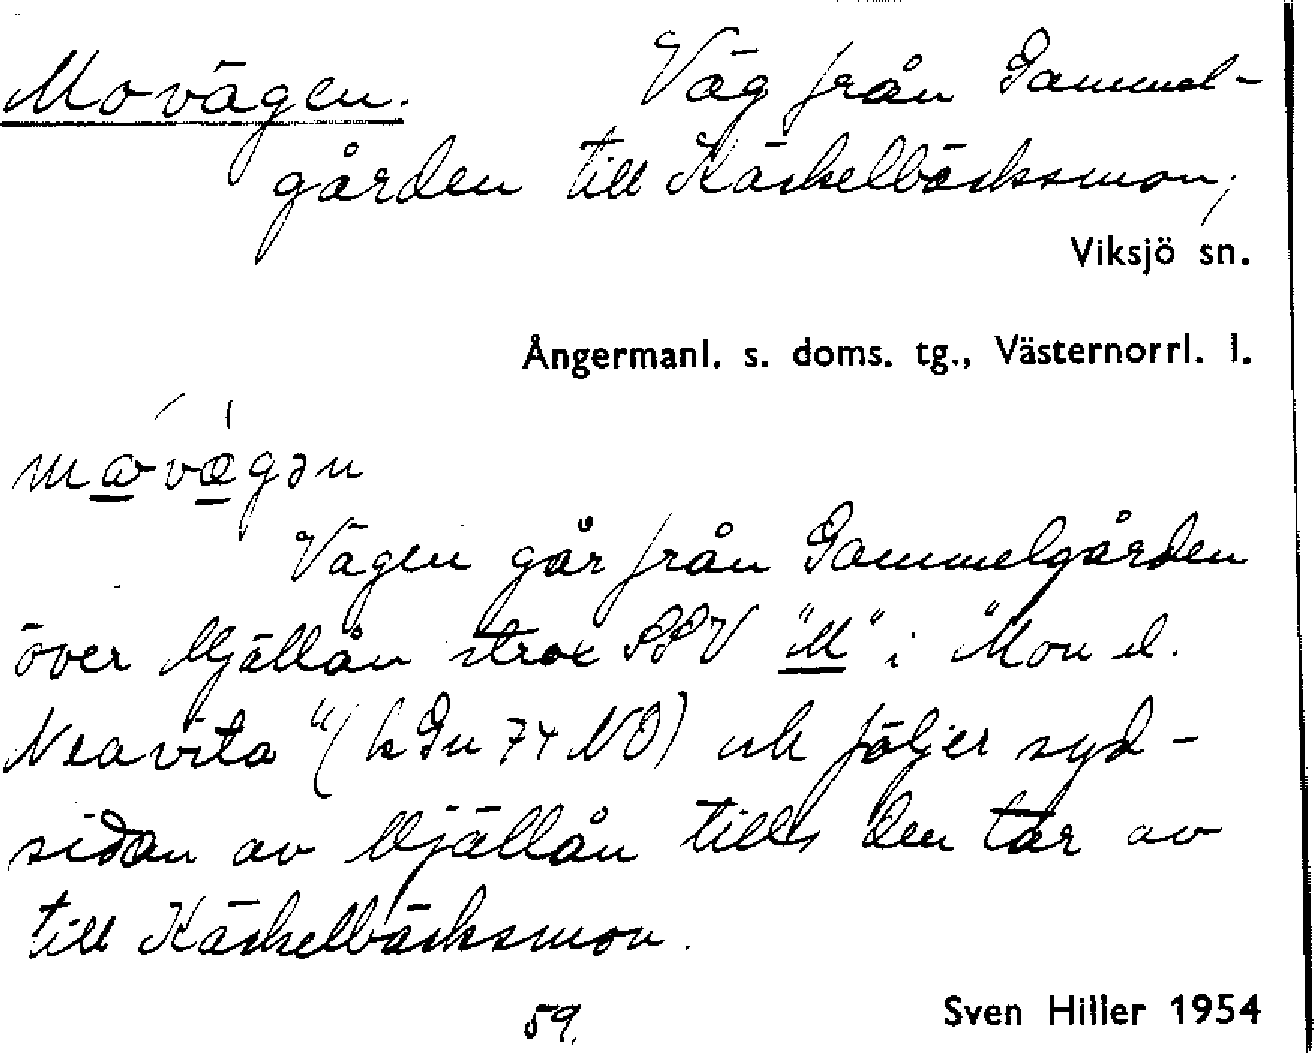 Movägen. Väg från Gammel-
gården till Käckelbäcksmon;
Viksjö sn.
Ångermanl. s. doms. tg., Västernorrl. l.
Vägen går från Gammelgården
över Mjällån strax SSV "M" i "Mon el.
Neavita" (h Gu 74 NO) och följer syd-
sidan av Mjällån tills den tar av
till Käckelbäcksmon.
59.
Sven Hiller 1954